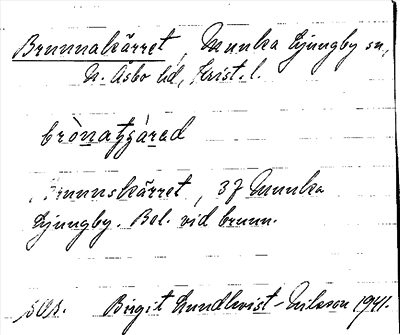 Brunnakärret, Munka Ljungby sn,
N. Åsbo hd, Krist. l.
brònatɟɟàrad
Brunnskärret, 37 Munka
Ljungby. Bel. vid brunn.
Birgit Lundkvist-Nilsson 1941.